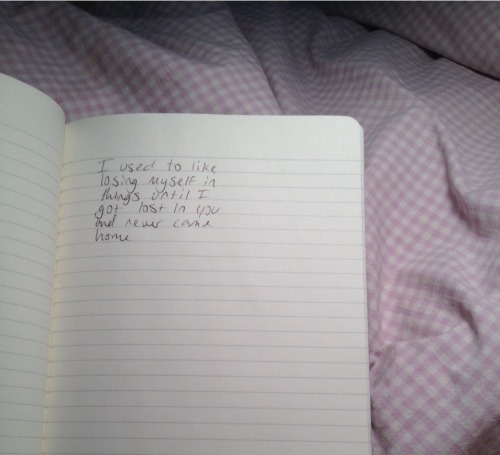 I used to like
losing myself in
things until I
got lost in you
and never came
home